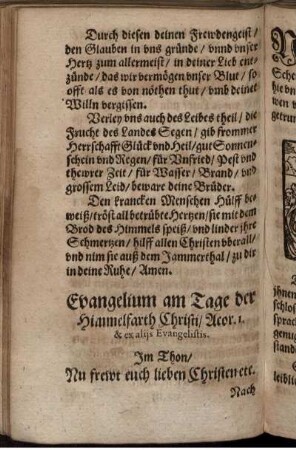 Durch diesen deinen Frewdengeist/
den Glauben in vns gründe/ vnnd vnser
Hertz zum allermeist/ in deiner Lieb ent-
zünde/ das wir vermögen vnser Blut/ so
offt als es von nöthen thut/ vmb deinet
Willn vergissen.
Verley vns auch des Leibes theil/ die
Frucht des Landes Segen/ gib frommer
Herrschafft Glück vnd Heil/ gut Sonnen-
schein vnd Regen/ für Vnfried/ Pest vnd
thewrer Zeit/ für Wasser/ Brand/ vnd
grossem Leid/ beware deine Brüder.
Den krancken Menschen Hülff be-
weiß/ tröst all betrübte Hertzen/ sie mit dem
Brod des Himmels speiß/ vnd linder ihre
Schmertzen/ hilff allen Christen vberall/
vnd nim sie auß dem Jammerthal/ zu dir
in deine Ruhe/ Amen.
Evangelium am Tage der
Himmelfarth Christi/ Actor. 1.
& ex alijs Evangelistis.
Im Thon/
Nu frewt euch lieben Christen etc.
Nach